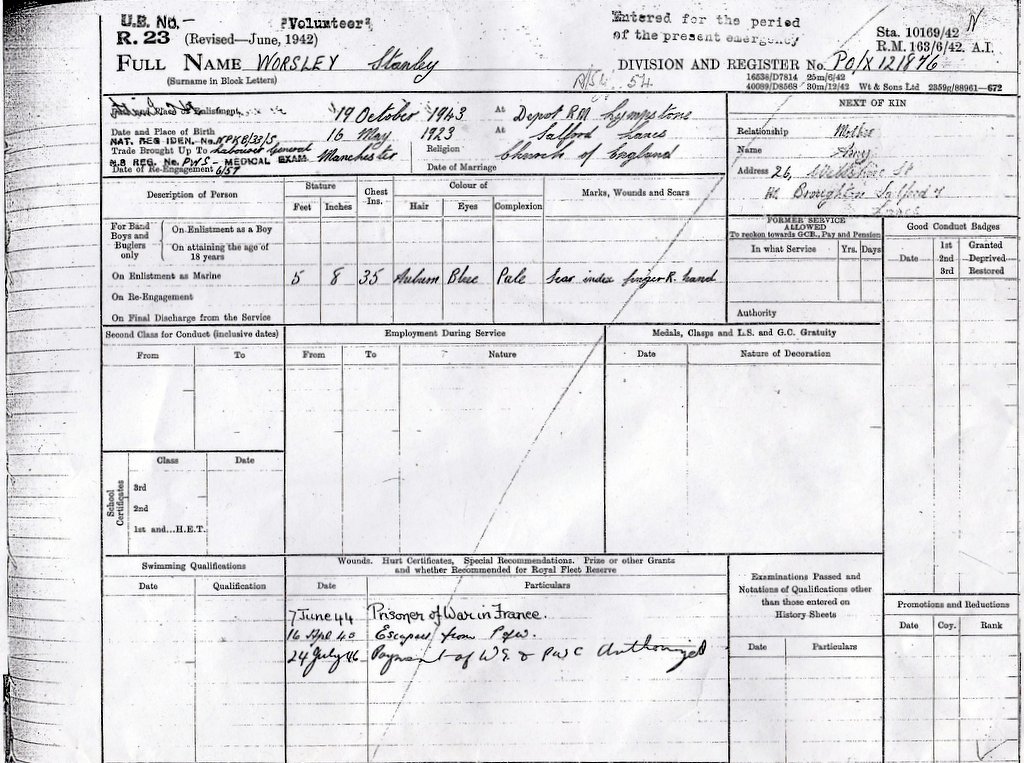 U.B. No.— "Volunteer" Entered for the period Sta. 10169/42 N
R. 23 (Revised—June, 1942) of the present emergency R.M. 163/6/42. A.I.
FULL NAME WORSLEY Stanley DIVISION AND REGISTER No. PO/X 121876
(Surname in Block Letters) 16538/D7814 25m/6/42
40089/D8568 30m/12/42 Wt & Sons Ltd 2359g/88961—672
Place of Enlistment 19 October 1943 At Depot RM Lympstone
Date and Place of Birth 16 May 1923 At Salford Lancs
NAT. REG IDEN. No.
Trade Brought Up To Labourer General Religion Church of England
N.B REG. No. PWS - MEDICAL EXAM. Manchester
Date of Re-Engagement 6/57 Date of Marriage
NEXT OF KIN
Relationship Mother
Name Amy
Address 26, St
Hr. Broughton Salford 7
Lancs
Description of Person Stature Chest Ins. Colour of Marks, Wounds and Scars
Feet Inches Hair Eyes Complexion
For Band Boys and Buglers only
On Enlistment as a Boy
On attaining the age of 18 years
On Enlistment as Marine 5 8 35 Auburn Blue Pale Scar index finger R. hand
On Re-Engagement
On Final Discharge from the Service
FORMER SERVICE
ALLOWED
To reckon towards GCB., Pay and Pension
In what Service Yrs. Days
Authority
Good Conduct Badges
Date 1st Granted
2nd Deprived
3rd Restored
Second Class for Conduct (inclusive dates)
From To
Employment During Service
From To Nature
Medals, Clasps and L.S. and G.C. Gratuity
Date Nature of Decoration
School Certificates
Class Date
3rd
2nd
1st and...H.E.T.
Swimming Qualifications
Date Qualification
Wounds. Hurt Certificates, Special Recommendations. Prize or other Grants
and whether Recommended for Royal Fleet Reserve
Date Particulars
7 June 44 Prisoner of War in France.
16 Escaped from P of W.
24 July 46 Payment of W.G. & P W C Authorized
Examinations Passed and
Notations of Qualifications other
than those entered on
History Sheets
Date Particulars
Promotions and Reductions
Date Coy. Rank